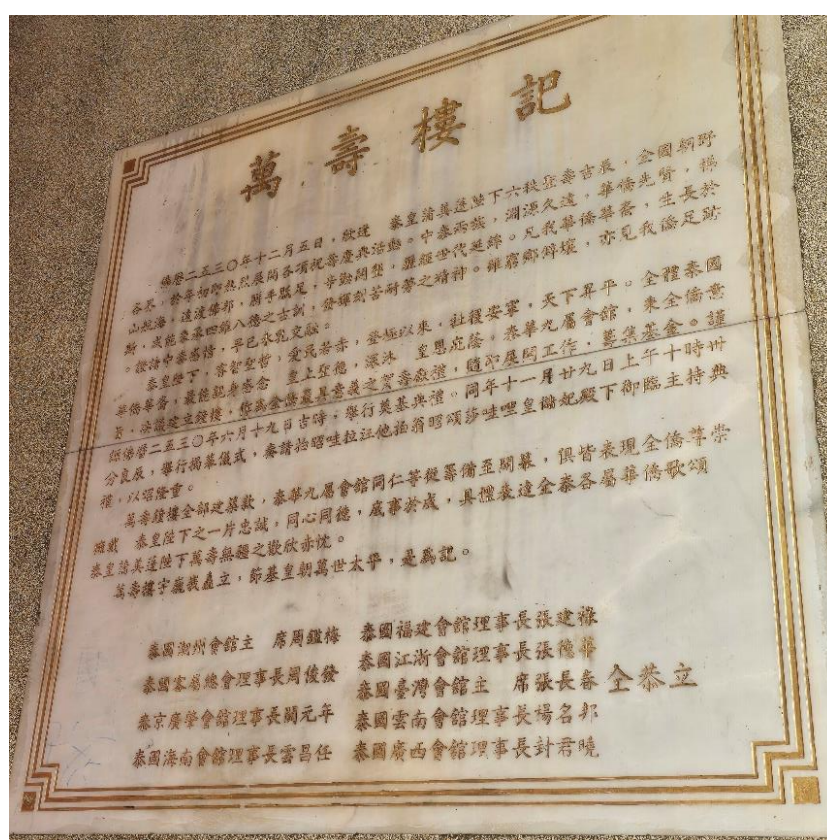 萬壽樓記
佛曆二五三〇年十二月五日，欣逢 泰皇蒲美蓬陛下六秩聖壽吉辰，全國朝野
各界，於年初即熱烈展開各項祝壽慶典活動。中泰兩族，淵源久遠，華僑先賢，梯
山航海，遠渡佛邦，胼手胝足，步辦開墾，歷經世代延綿。凡我華僑華裔，生長於
斯，咸能秉承四維八德之古訓，發揮刻苦耐勞之精神。雖窮鄉僻壤，亦見我僑足跡
。證諸中泰感情，早已水乳交融。
泰皇陛下，睿智聖哲，愛民若赤，登極以來，社稷安寧，天下昇平。全體泰國
華僑華裔，最能記者眷念 皇上聖德，深沐 皇恩庇蔭。泰華九屬會館，秉全僑意
旨，決議建立鐘樓，作為全僑最具意義之賀壽獻禮，隨即展開工作，籌集基金。謹
經佛曆二五三〇年六月十九日吉時，舉行奠基典禮。同年十一月廿九日上午十時卅
分良辰，舉行揭幕儀式，奏請拍昭哇拉汪他拍翁昭頌莎哇哩皇儲妃殿下御臨主持典
禮，以昭隆重。
萬壽鐘樓全部建築款，泰華九屬會館同仁等從籌備至開幕，俱皆表現全僑尊崇
擁戴 泰皇陛下之一片忠誠，同心同德，咸事於成，具體表達全泰各屬華僑歌頌
泰皇蒲美蓬陛下萬壽無疆之歡欣赤忱。
萬壽樓宇巍峨矗立，節基皇朝萬世太平，是為記。
泰國潮州會館主 席周鑑梅 泰國福建會館理事長張建祿
泰國客屬總會理事長周俊發 泰國江浙會館理事長張德華
泰國臺灣會館主 席張長春 仝恭立
泰京廣肇會館理事長關元年 泰國雲南會館理事長楊名邦
泰國海南會館理事長雲昌任 泰國廣西會館理事長封君曉